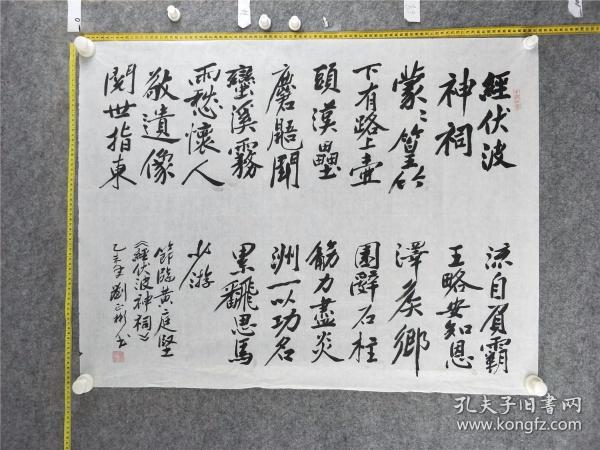 經伏波
神祠
蒙〻篁竹
下有路上壺
頭漢壘
麏鼯鬪
蠻溪霧
雨愁懷人
敬遺像
閱世指東
流自負霸
王略安知恩
澤侯鄉
園辭石柱
筋力盡炎
洲一以功名
累飜思馬
少游
節臨黃庭堅
《經伏波神祠》
乙未 劉正彬書
孔夫子旧书网
www.kongfz.com